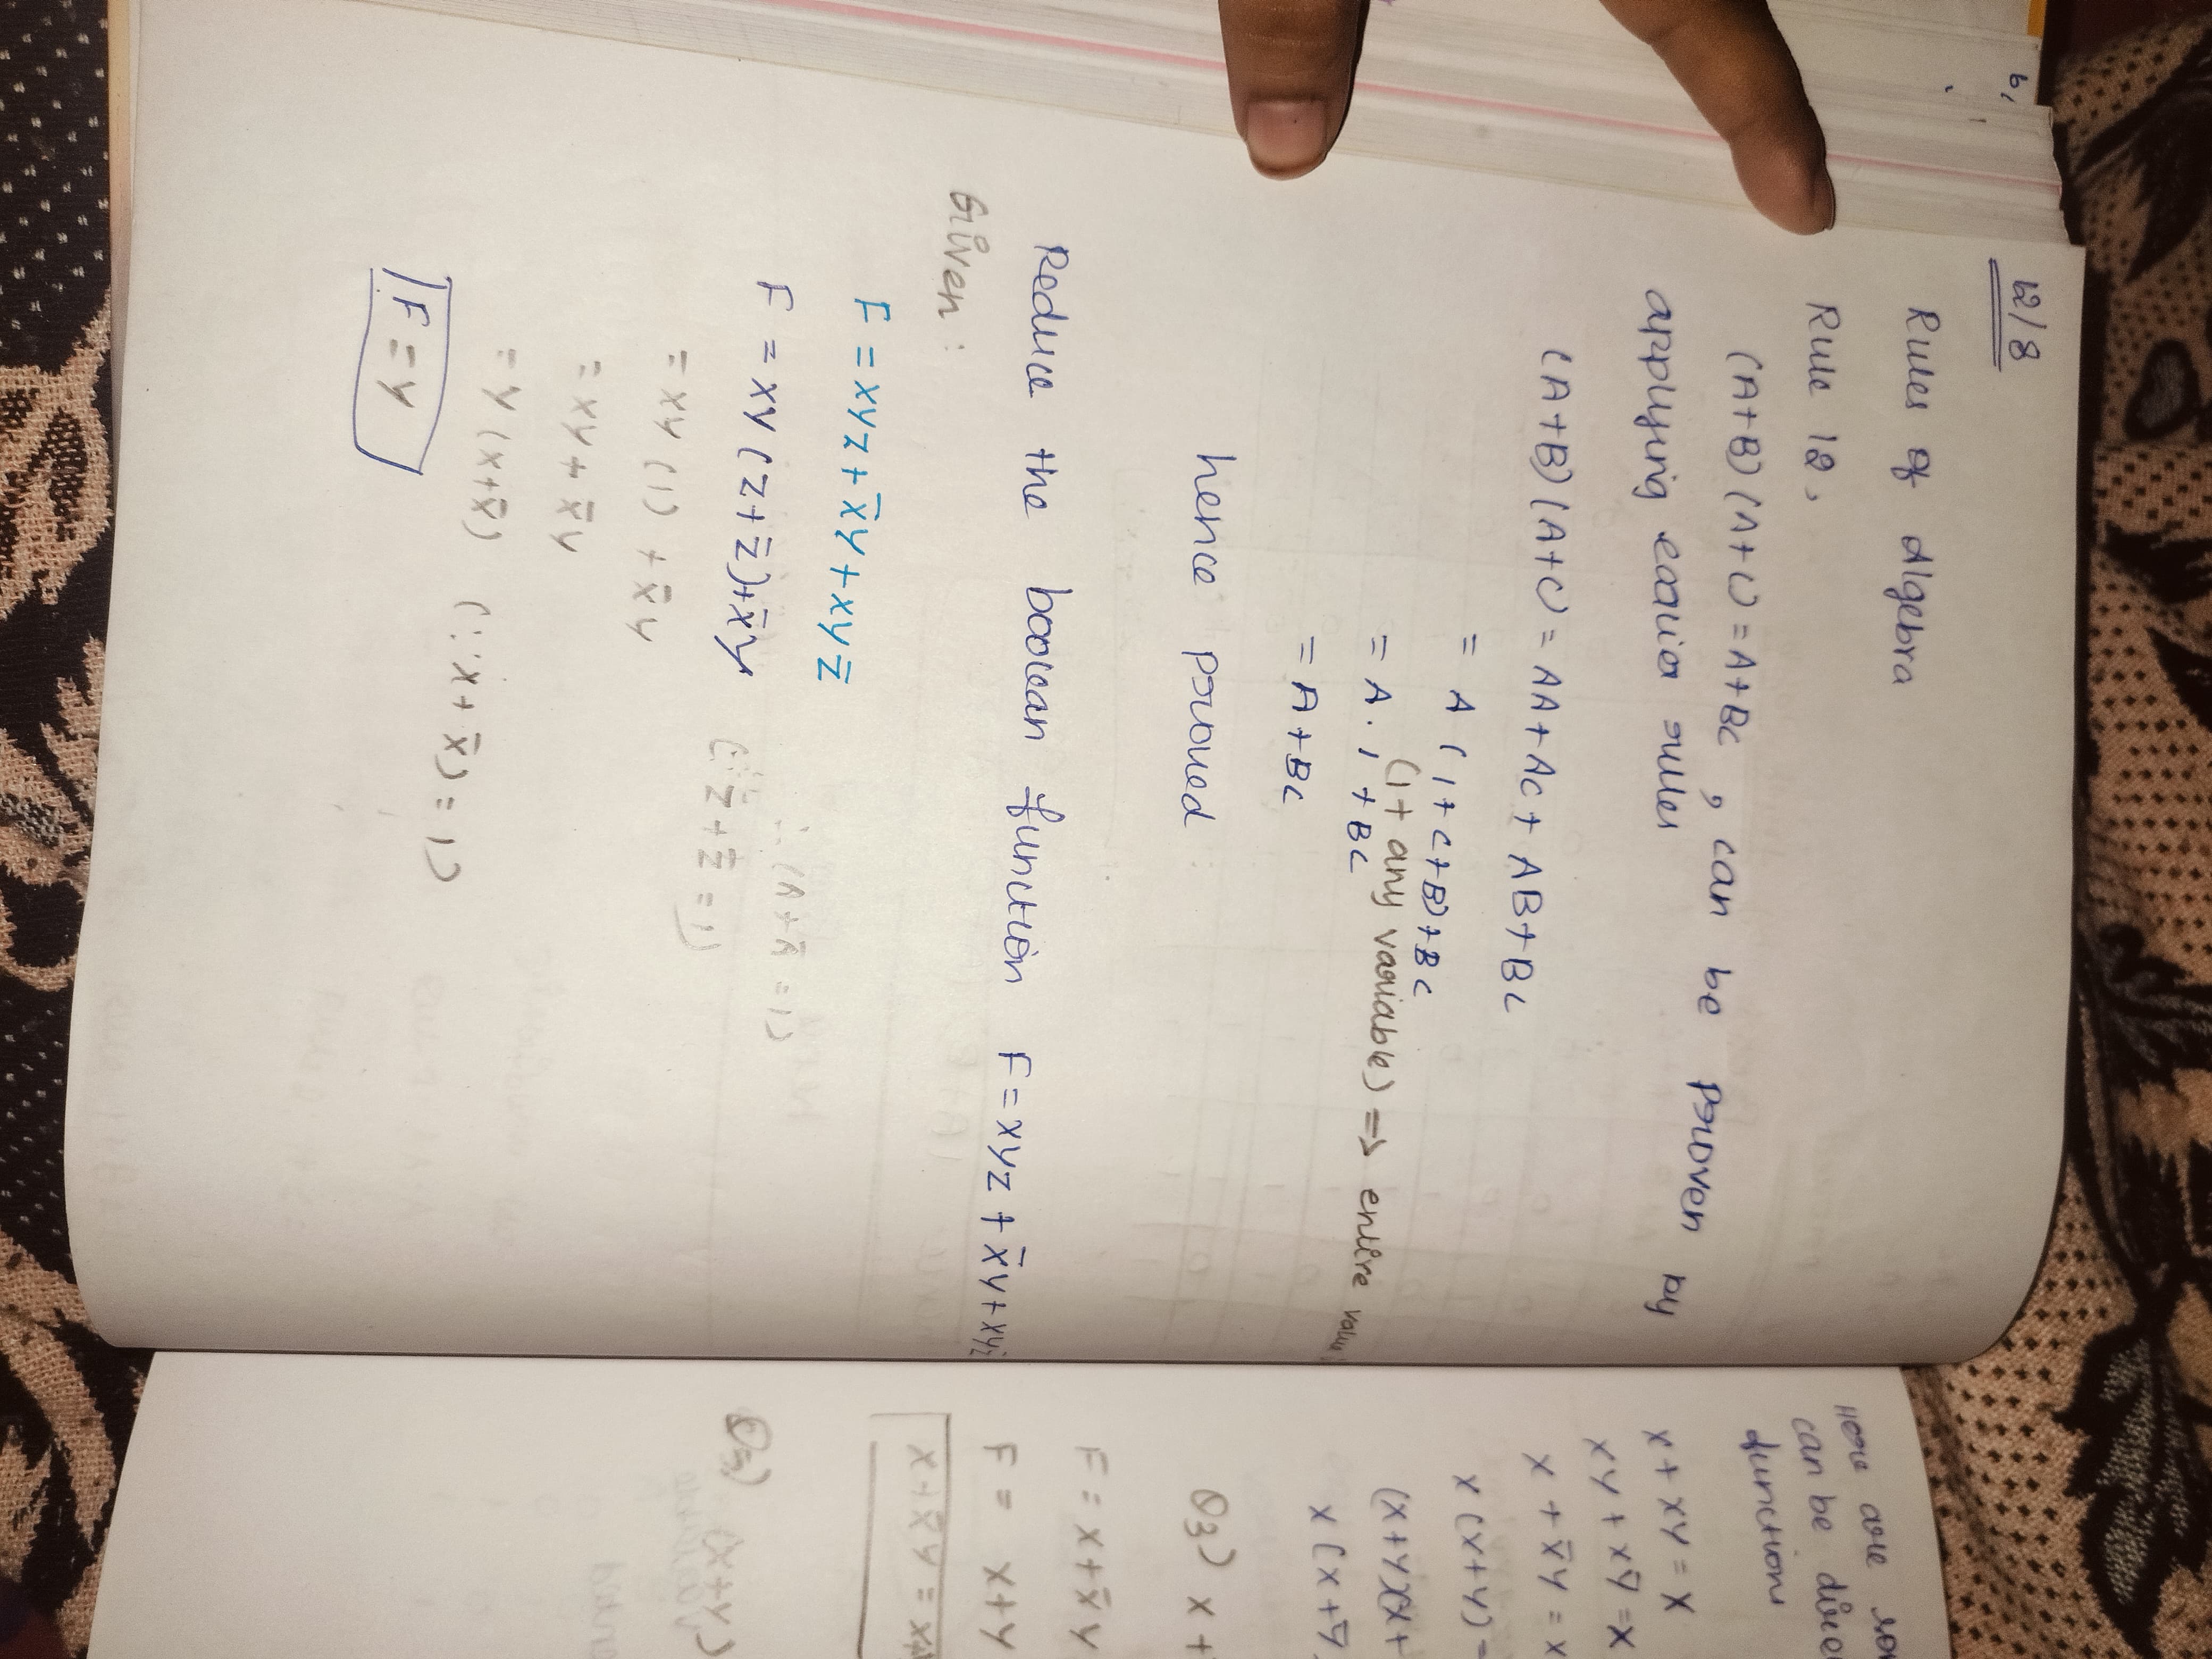 12/8
Rules of Algebra
Rule 12,
(A+B)(A+C) = A+BC , can be proven by
applying earlier rules
(A+B)(A+C) = AA+AC+ AB+BC
= A (1+C+B)+BC
(1+ any variable) => entire value
= A.1 +BC
= A+BC
hence proved
Reduce the boolean function F=xyz + x̄y+xyz̄
Given :
F = xyz+x̄y+xyz̄
∴ (A+Ā = 1)
F = xy(z+z̄)+x̄y (∵ z+z̄ = 1)
= xy (1) + x̄y
= xy+x̄y
= y(x+x̄) (∵ x+x̄) = 1)
F = y
Here are
can be
functions
x+xy = x
xy+xȳ = x
x+x̄y = x
x(x+y) =
(x+y)(x+
x(x+ȳ
Q3) x +
F = x+x̄y
F = x+y
x+x̄y = x+
(x+y)